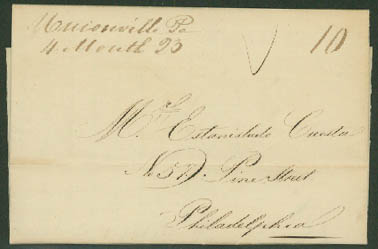 Unionville Pa
4 Mouth 23
10
Mr. Estanislado
No 57 Pine Street
Philadelphia